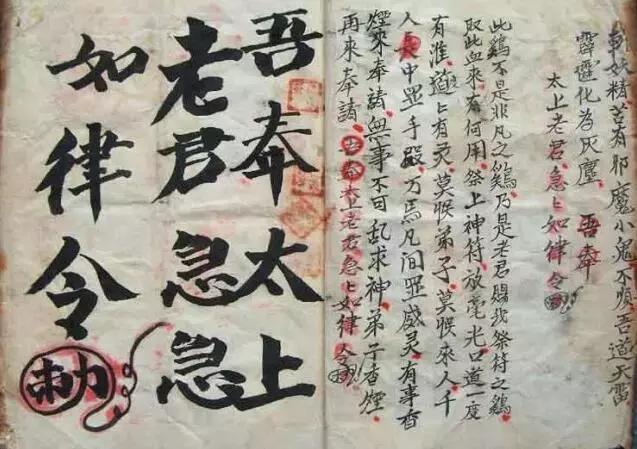 斬妖精若有邪魔小鬼不順吾道天雷
霹靂化為灰塵 吾奉
太上老君急々如律令
此鷄不是非凡之鷄乃是老君賜我祭符之鷄
取此血來有何用祭上神符放毫光口道一度
有准道々有灵莫猴弟子莫猴來人千
人長中显手段万馬凡间显威灵有事香
煙來奉請無事不可乱求神弟子香煙
再來奉請吾奉太上老君急々如律令
吾奉太上
老君急急
如律令
勅